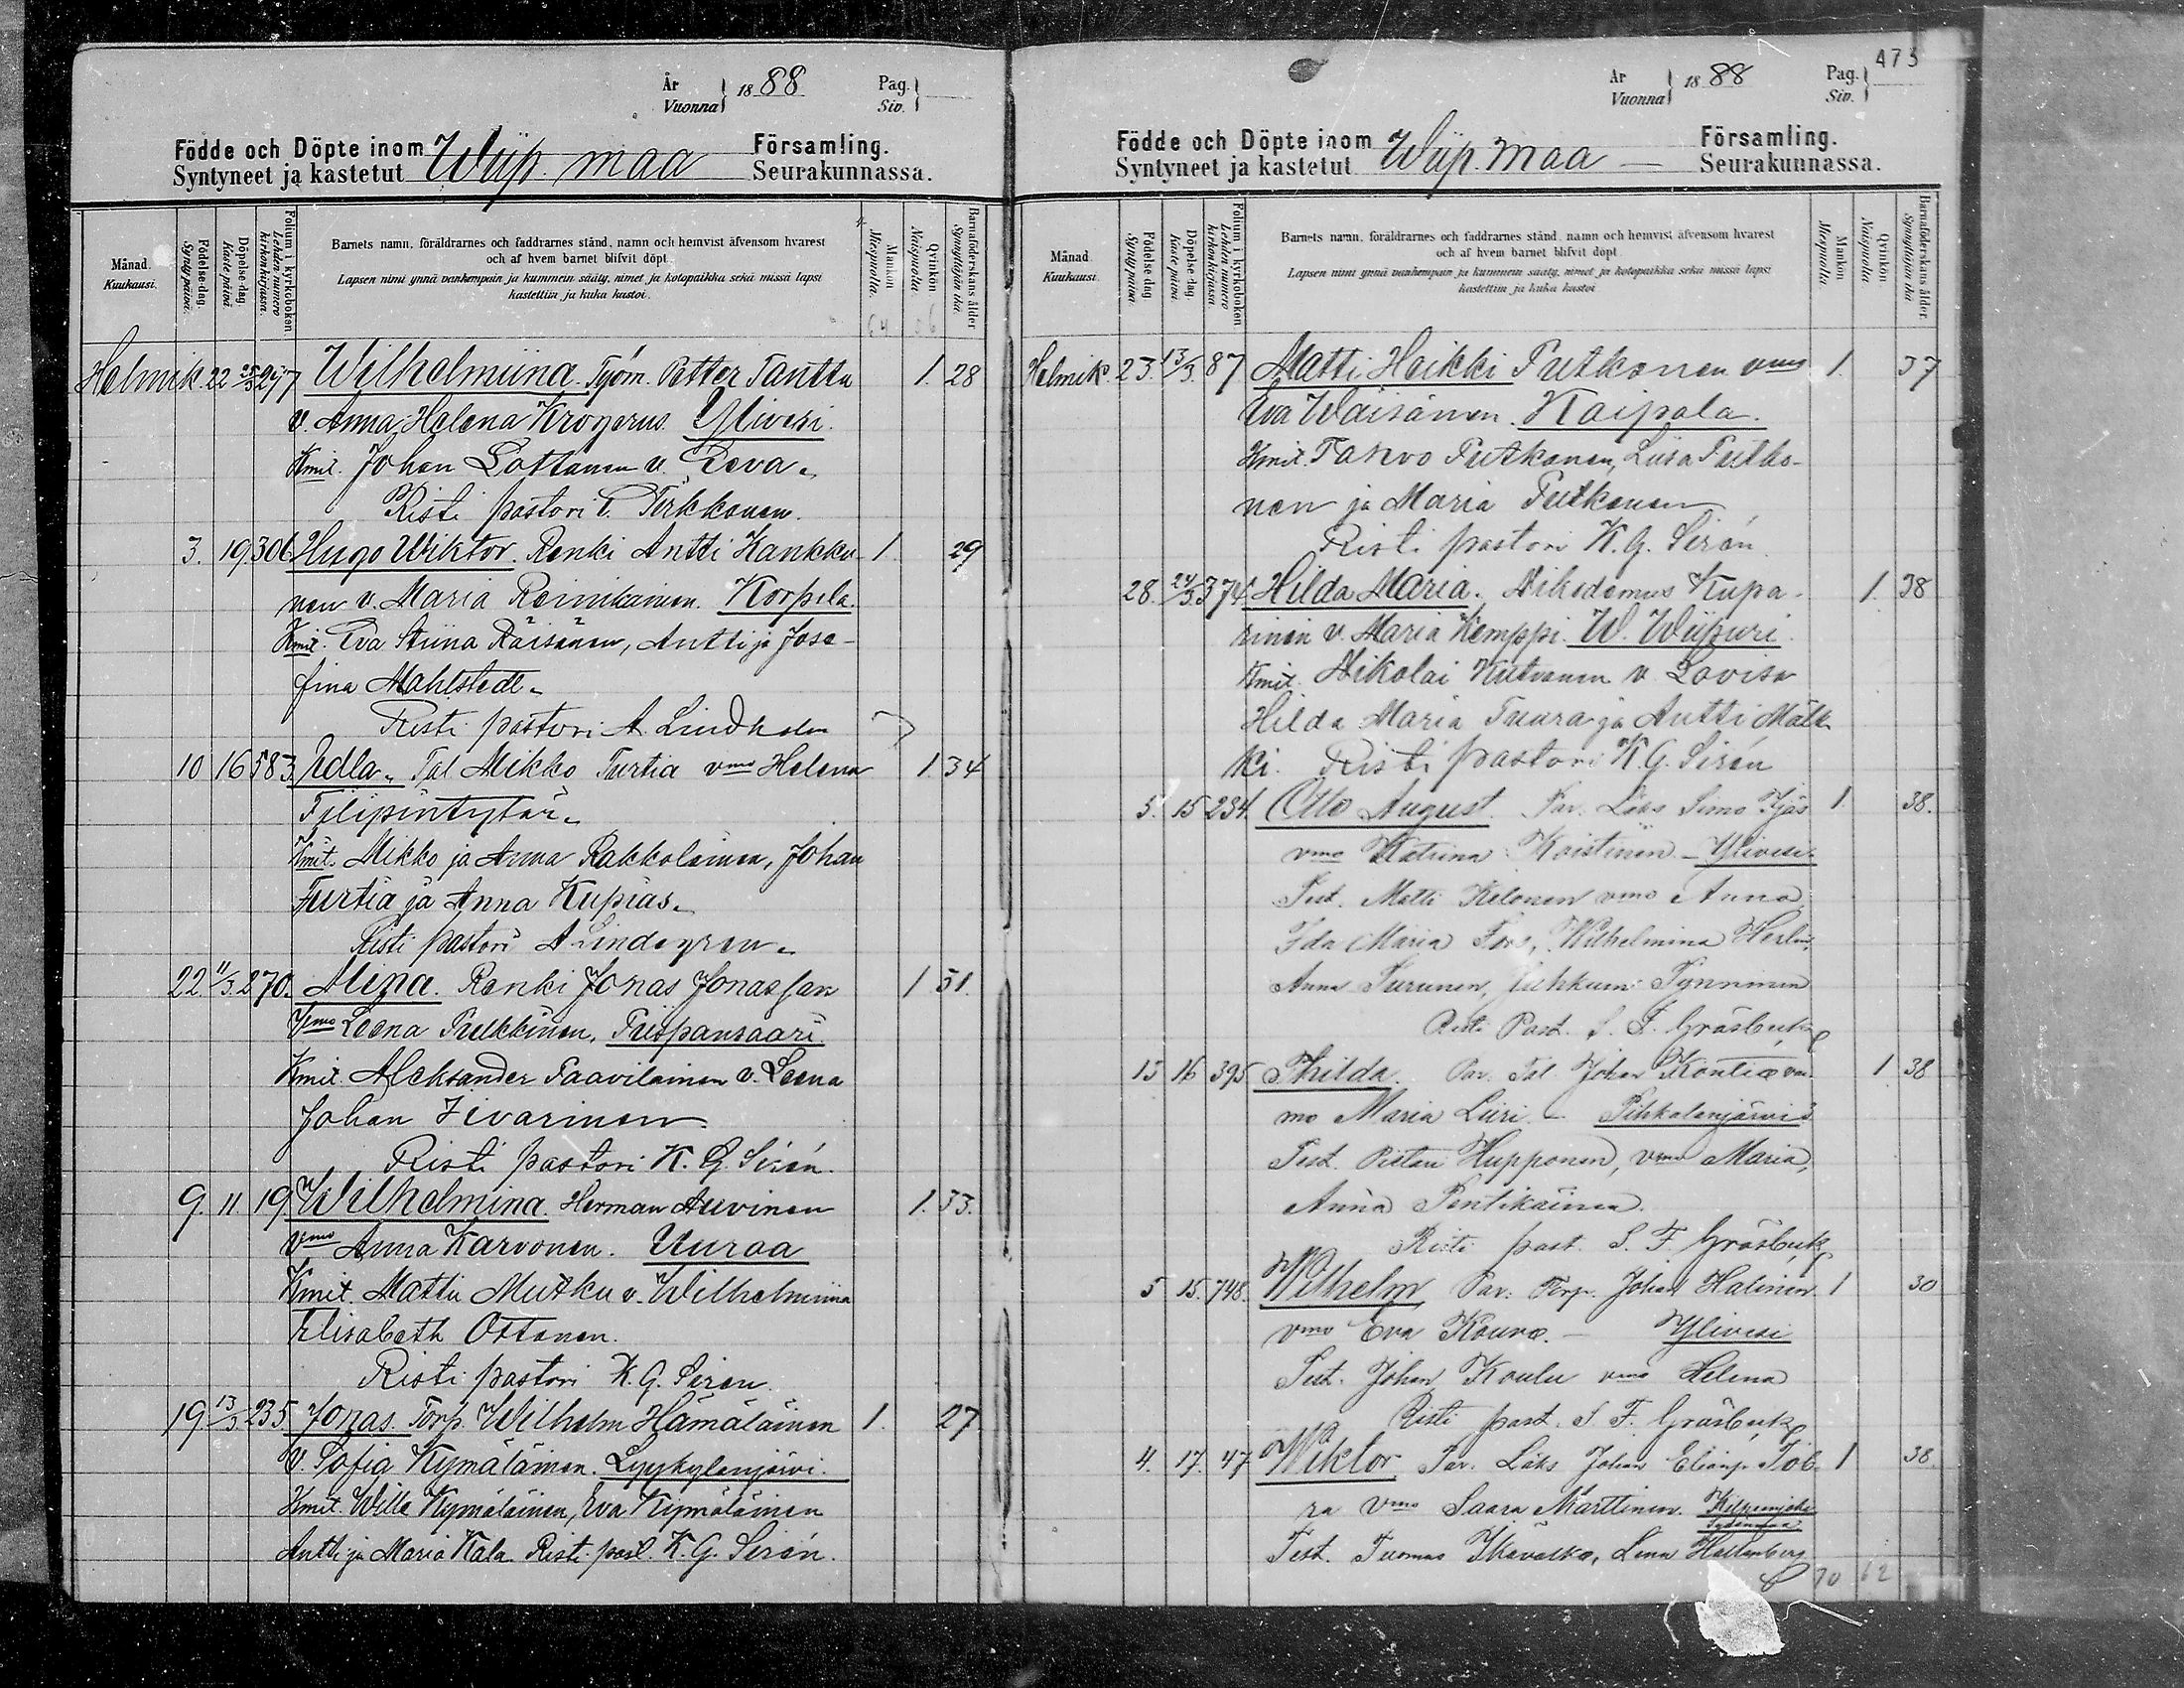 År
Vuonna } 1888 Pag.
Siv. }
Födde och Döpte inom Wiip. maa Församling.
Syntyneet ja kastetut Seurakunnassa.
Månad.
Kuukausi.
Födelse-dag.
Syntypäivä.
Döpelse-dag.
Kastepäivä.
Folium i kyrkoboken
Lehden numero kirkonkirjassa.
Barnets namn, föräldrarnes och faddrarnes stånd, namn och hemvist äfvensom hvarest
och af hvem barnet blifvit döpt.
Lapsen nimi ynnä vanhempain ja kummein sääty, nimet ja kotopaikka sekä missä lapsi
kastettiin ja kuka kastoi.
Mankön
Miespuolia.
Qvinkön
Naispuolia.
Barnaföderskans ålder
Synnyttäjän ikä
Helmik. 22 25/3 297 Wilhelmiina. Työm. Petter Tanttu 1. 28
v. Anna Helena Krogerus. Ylivesi.
Kmit. Johan Lottanen v. Eeva.
Risti pastori Pirkkanen.
3. 19. 306 Hugo Wiktor. Renki Antti Kankku- 1. 29
nen v. Maria Reinikainen. Korpela.
Kmit. Eva Stiina Räisänen, Antti ja Jose-
fina Mahlstedt.
Risti pastori A. Lindholm
10 16 583. Edla. Tal Mikko Turtia vmo Helena 1. 34
Filipintytär.
Kmit. Mikko ja Anna Rakkolainen, Johan
Turtia ja Anna Kupias.
Risti pastori A Lindegren.
22. 11/3. 270. Miina. Renki Jonas Jonasson 1 31.
Vmo Leena Pulkkinen, Piispansaari.
Kmit. Aleksander Paavilainen v. Leena
Johan Iivarinen
Risti pastori K. G. Sirén.
9. 11. 19 Wilhelmina. Herman Auvinen 1. 33.
Vmo Anna Karvonen. Uuraa
Kmit. Matti Mutku v. Wilhelmiina
Elisabeth Ottanen.
Risti pastori K. G. Siren.
19. 13/3 235. Jonas. Torp. Wilhelm Hämäläinen 1. 27
V. Sofia Kymäläinen. Lyykylänjärvi.
Kmit. Wille Kymäläinen, Eva Kymäläinen
Antti ja Maria Kala. Risti past. K. G. Sirén.
473
År
Vuonna } 1888 Pag.
Siv. }
Födde och Döpte inom Wiip. maa Församling.
Syntyneet ja kastetut Seurakunnassa.
Månad.
Kuukausi.
Födelse-dag
Syntypäivä.
Döpelse-dag
Kastepäivä.
Folium i kyrkoboken
Lehden numero kirkonkirjassa.
Barnets namn, föräldrarnes och faddrarnes stånd, namn och hemvist äfvensom hvarest
och af hvem barnet blifvit döpt.
Lapsen nimi ynnä vanhempain ja kummein sääty, nimet ja kotopaikka sekä missä lapsi
kastettiin ja kuka kastoi
Mankön
Miespuolia
Qvinkön
Naispuolia
Barnaföderskans ålder.
Synnyttäjän ikä
Helmik. 23. 13/3. 87 Matti Heikki Putkonen vmo 1. 37
Eva Wäisänen. Kaipola.
Kmit. Paavo Putkonen, Liisa Putko-
nen ja Maria Putkonen
Risti pastori K. G. Sirén.
28. 24/3. 374. Hilda Maria. Nikodemus Kupa- 1. 38
rinen v. Maria Kemppi. W. Wiipuri.
Kmit. Nikolai Kutvonen v. Lovisa
Hilda Maria Tuura ja Antti Mälk-
ki. Risti pastori K. G. Sirén
5. 15 234. Otto August. Par. Läks Simo Kjäs 1 38.
vmo Katrina Koistinen - Ylivesi.
Test. Matti Kelonen vmo Anna,
Ida Maria Fors, Wilhelmina Herlin,
Anna Turunen, Juhkum Tynninen
Risti Past. S. F. Gräsbeck
13 16 395 Thilda. Par. Tal. Johan Kontia vai- 1 38
mo Maria Liiri. - Pihkalanjärvi
Test. Pietari Hupponen, vmo Maria,
Anna Pentikäinen.
Risti past. S. F. Gräsbeck
5 15. 748. Wilhelm, Par. Torp. Johan Halinen 1 30
vmo Eva Kouvo. - Ylivesi
Test. Johan Koulu vmo Helena
Risti past. S. F. Gräsbeck
4. 17. 47 Wiktor Par. Läks Johan Elianp. Töb- 1 38.
ra Vmo Saara Marttinen.
Test. Tuomas Ikävalko, Lena Hallenberg
70 62